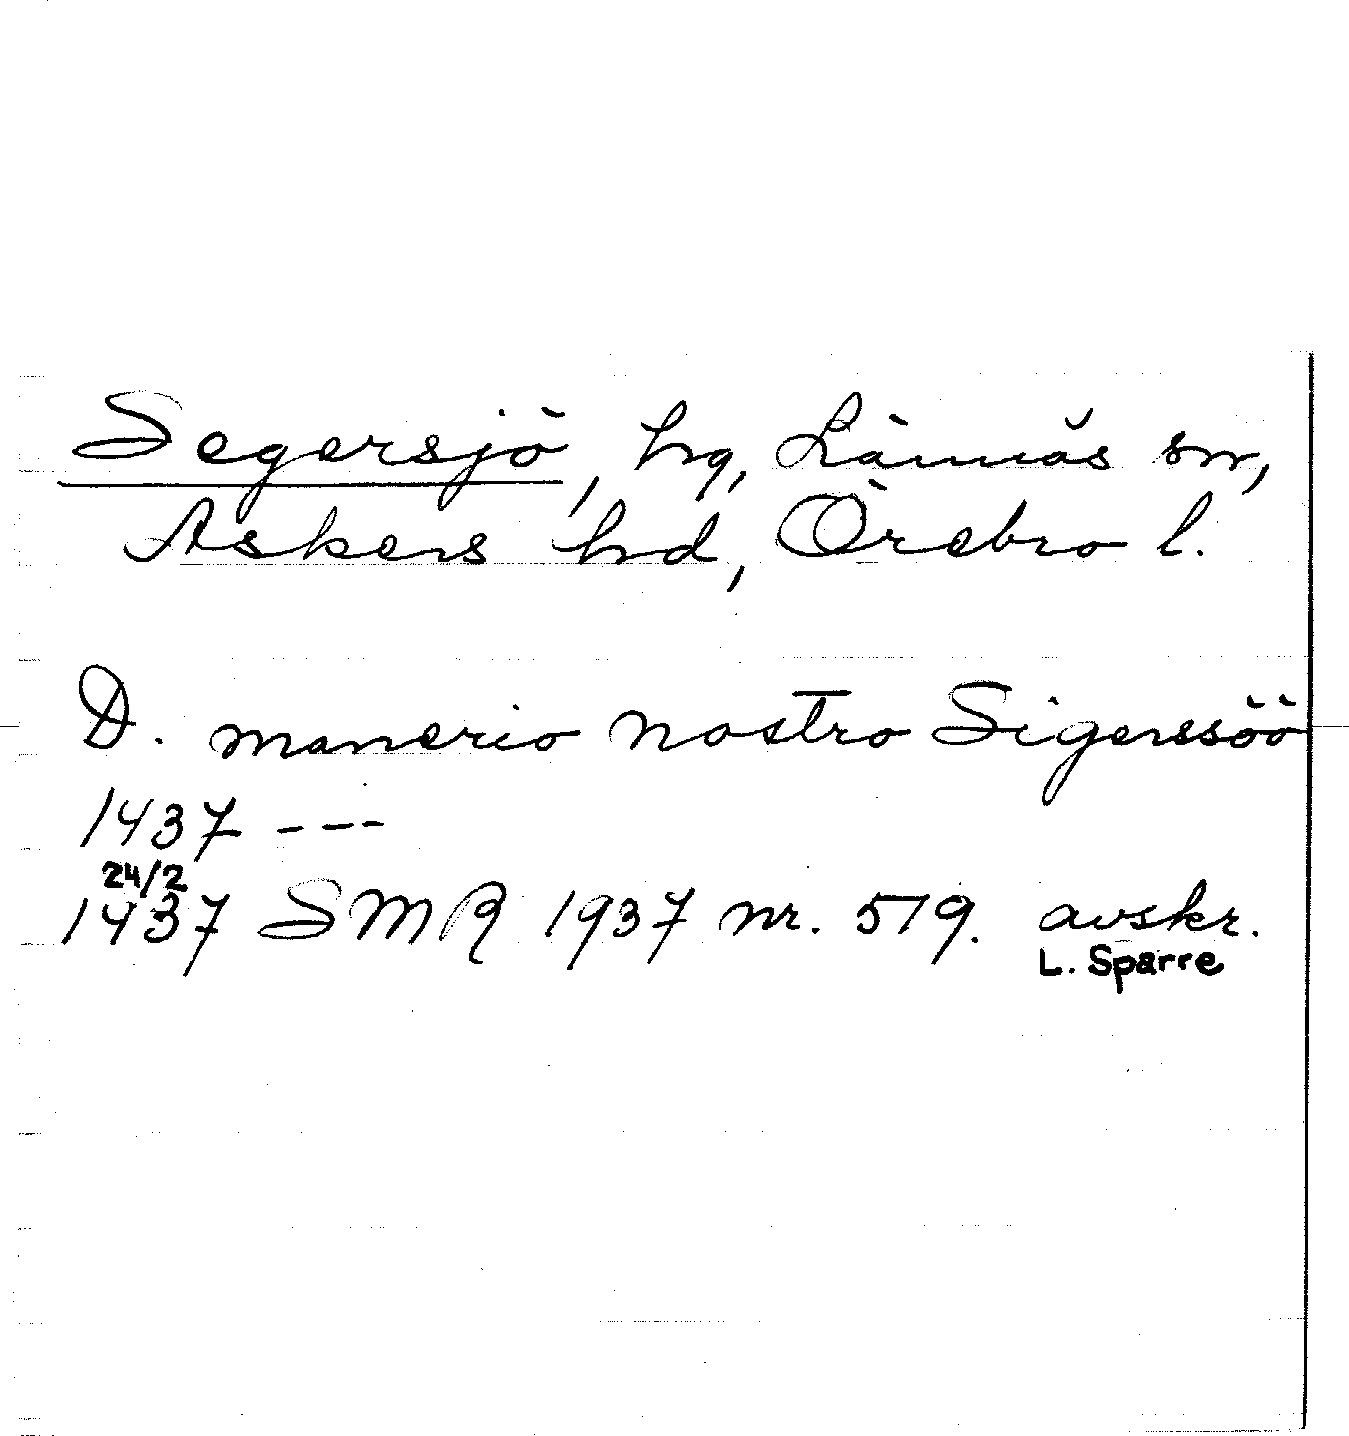 Segersjö, hg, Lännäs sn,
Askers hd, Örebro l.
D. manerio nostro Sigerssöö
1437 ---
24/2
1437 SMR 1937 nr. 519. avskr.
L. Sparre